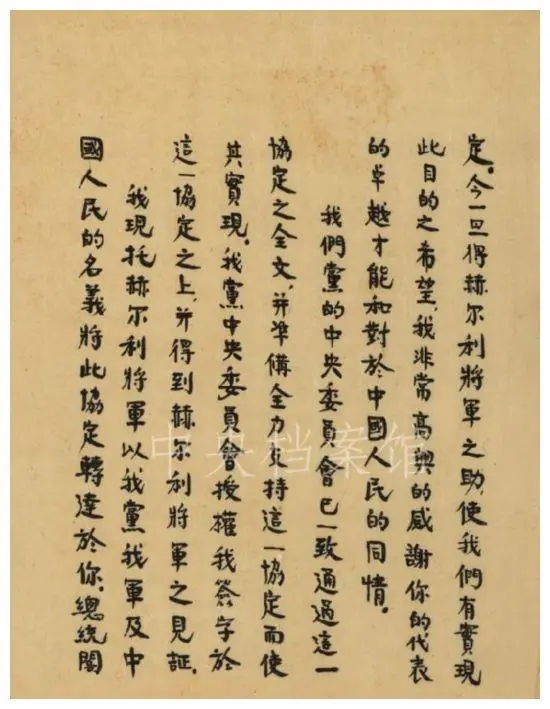 定。今一旦得赫尔利將軍之助,使我們有實現
此目的之希望,我非常高興的感謝你的代表
的卓越才能和對於中國人民的同情。
我們黨的中央委員會已一致通過這一
協定之全文,并准備全力支持這一協定而使
其實現。我黨中央委員會授權我簽字於
這一協定之上,并得到赫尔利將軍之見証。
我現托赫尔利將軍以我黨我軍及中
國人民的名義將此協定轉達於你。總統閣
中央档案馆